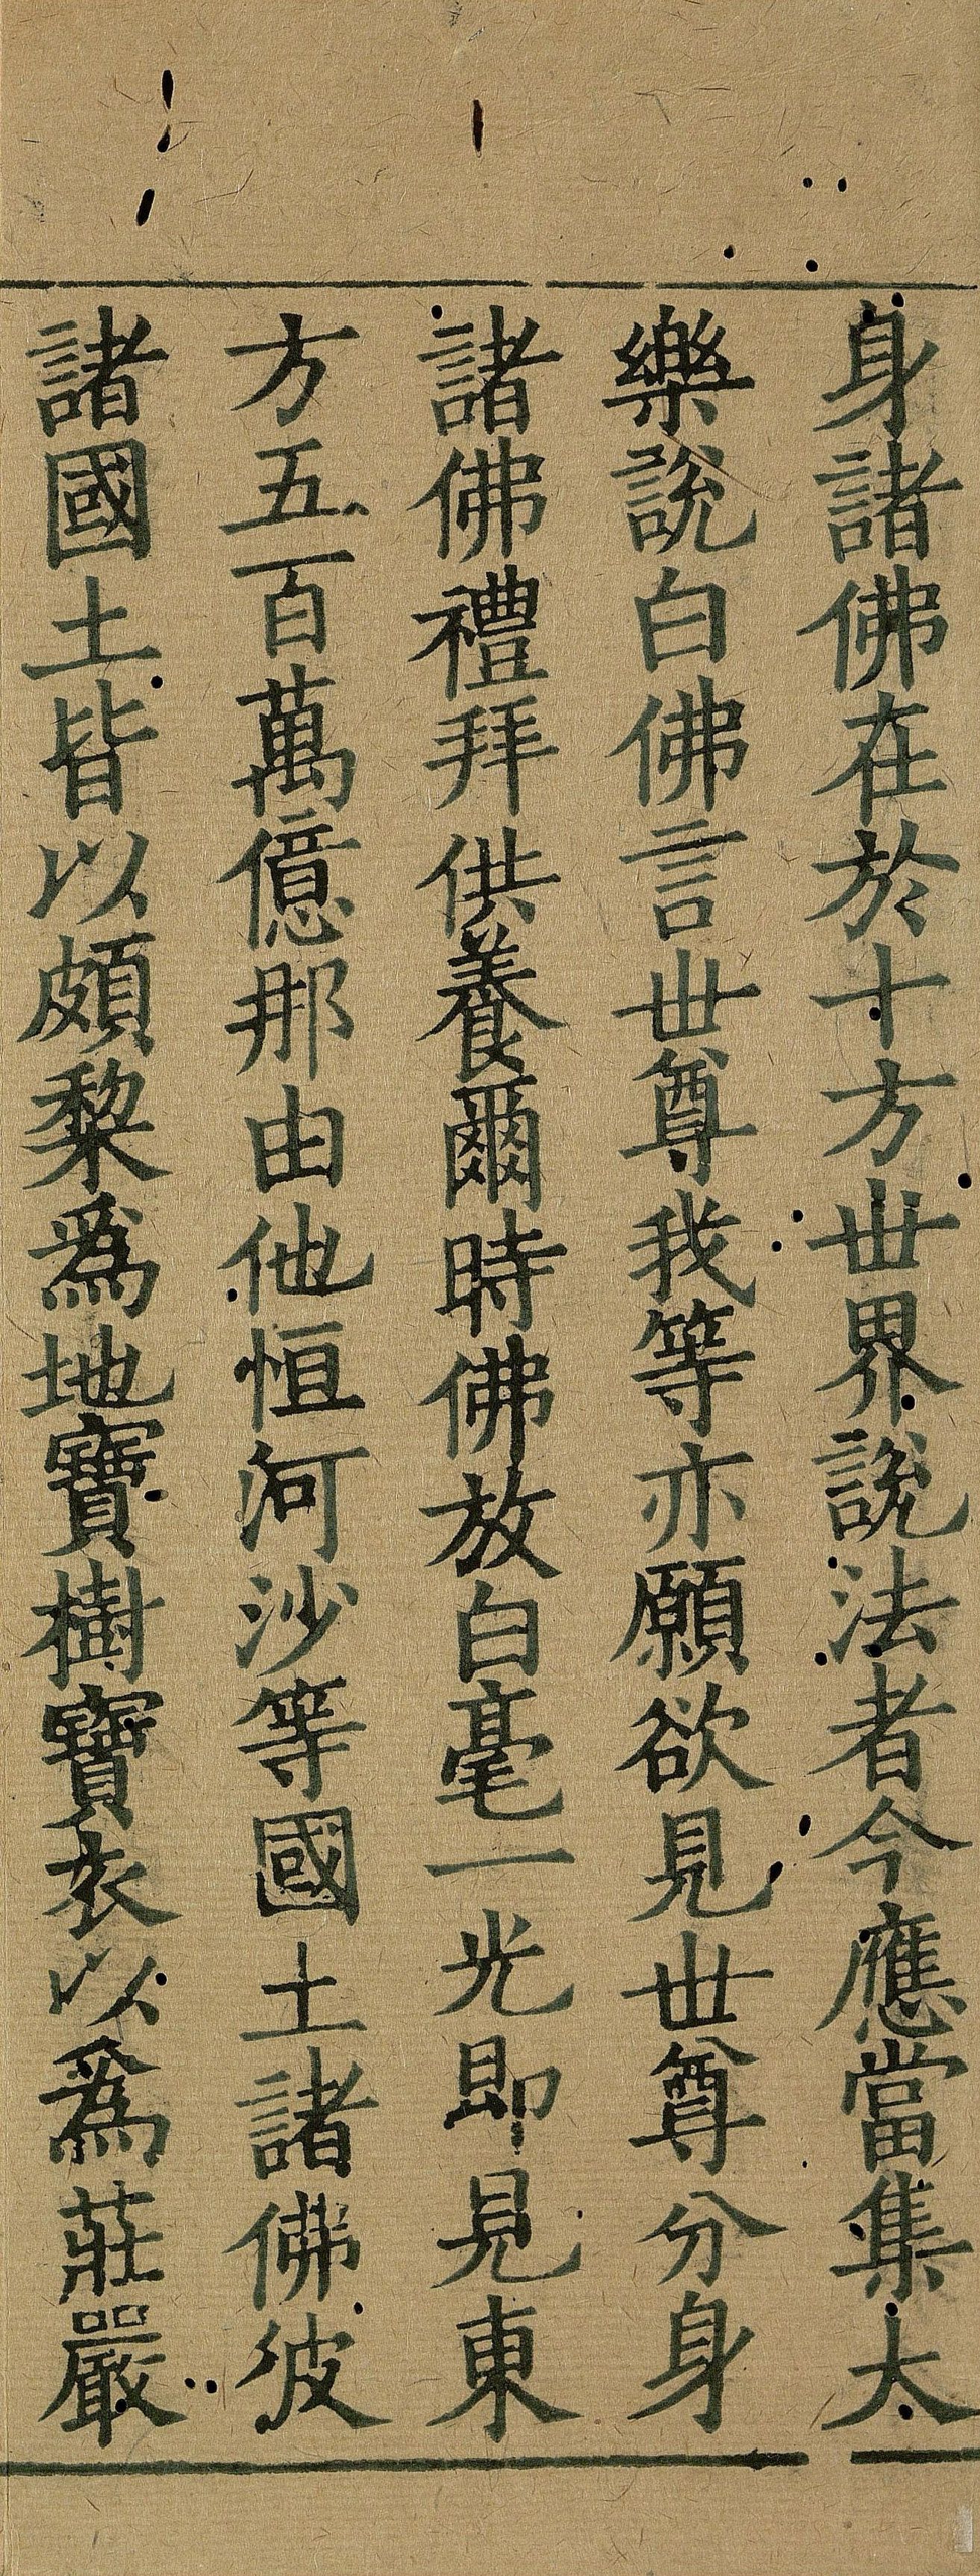 身諸佛在於十方世界說法者今應當集大
樂說白佛言世尊我等亦願欲見世尊分身
諸佛禮拜供養爾時佛放白毫一光即見東
方五百萬億那由他恒河沙等國土諸佛彼
諸國土皆以頗黎爲地寶樹寶衣以爲莊嚴